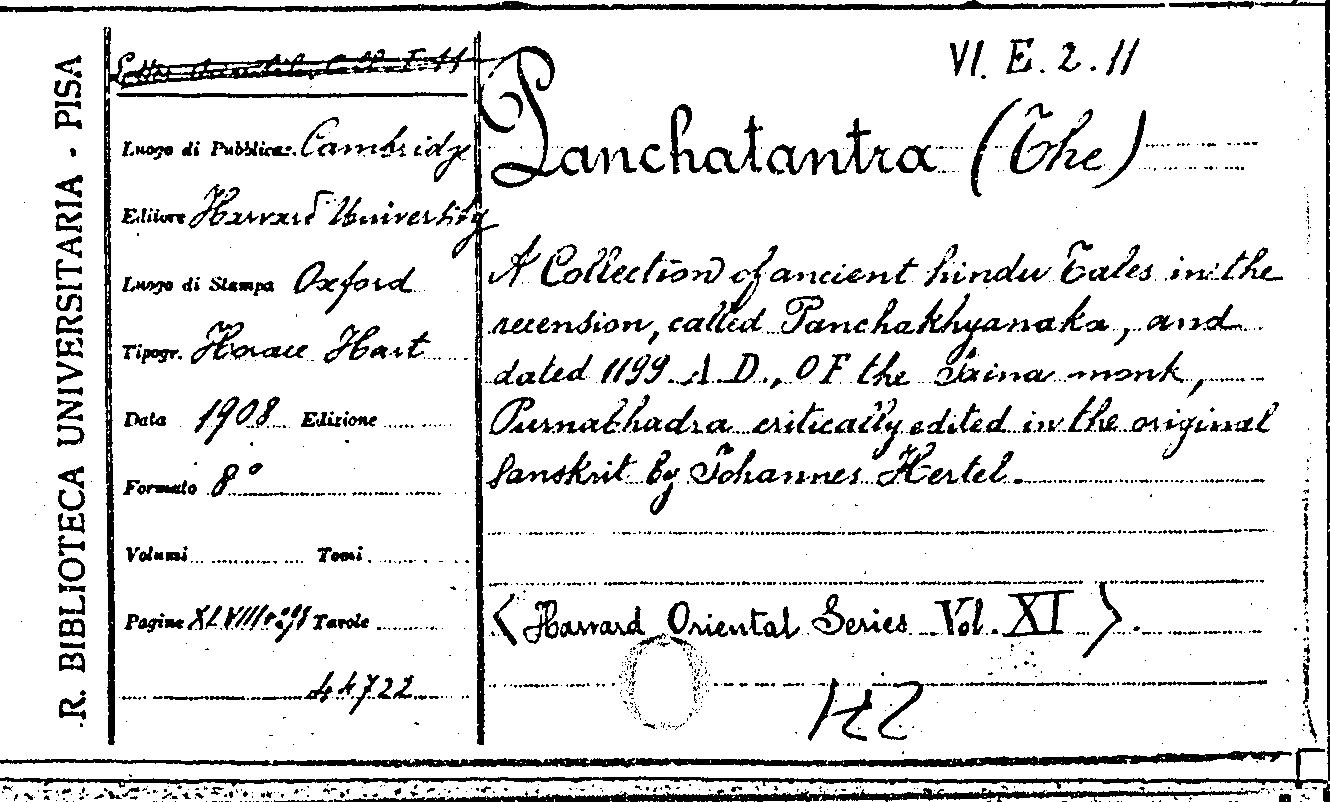 R. BIBLIOTECA UNIVERSITARIA - PISA
Luogo di Pubblicaz. Cambridge
Editore Harvard University
Luogo di Stampa Oxford
Tipogr. Horace Hart
Data 1908 Edizione
Formato 8°
Volumi Tomi
Pagine XLVIII Tavole
44722
VI. E. 2. 11
Panchatantra (The)
A Collection of ancient hindu Tales in the
recension, called Panchakhyanaka, and
dated 1199 A.D., OF the Jaina monk,
Purnabhadra critically edited in the original
Sanskrit by Johannes Hertel.
< Harvard Oriental Series Vol. XI >.